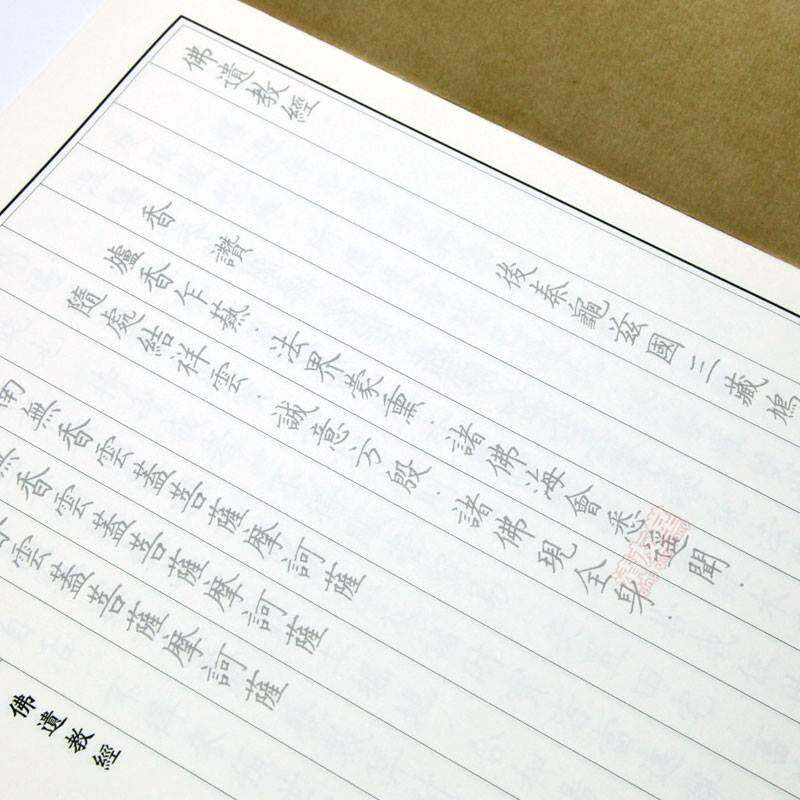 佛遺教經
後秦龜茲國三藏鳩
香讚
爐香乍爇．法界蒙熏．諸佛海會悉遙聞．
隨處結祥雲．誠意方殷．諸佛現全身．
南無香雲蓋菩薩摩訶薩
無香雲蓋菩薩摩訶薩
香雲蓋菩薩摩訶薩
佛遺教經